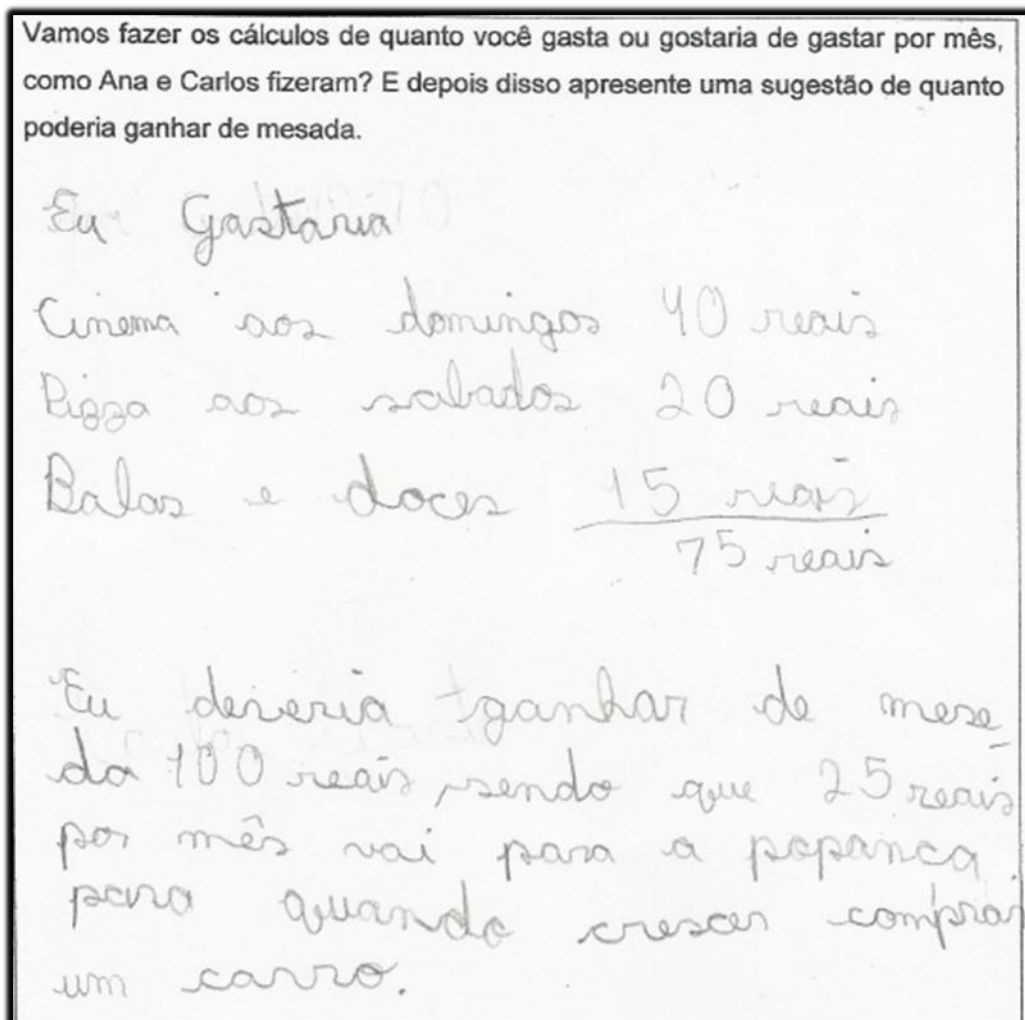 Vamos fazer os cálculos de quanto você gasta ou gostaria de gastar por mês,
como Ana e Carlos fizeram? E depois disso apresente uma sugestão de quanto
poderia ganhar de mesada.
Eu Gastaria
Cinema aos domingos 40 reais
Pizza aos sabados 20 reais
Balas e doces 15 reais
75 reais
Eu deveria ganhar de mese
da 100 reais, sendo que 25 reais
por mês vai para a popanca
para quando crescer comprar
um carro.